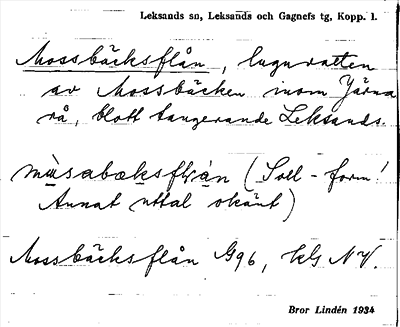 Leksands sn, Leksands och Gagnefs tg, Kopp. l.
Mossbäcksflån, lugnvatten
av Mossbäcken inom Järna
rå, blott tangerande Leksands.
(Soll-form!
Annat uttal okänt)
Mossbäcksflån G96, kls NV.
Bror Lindén 1934